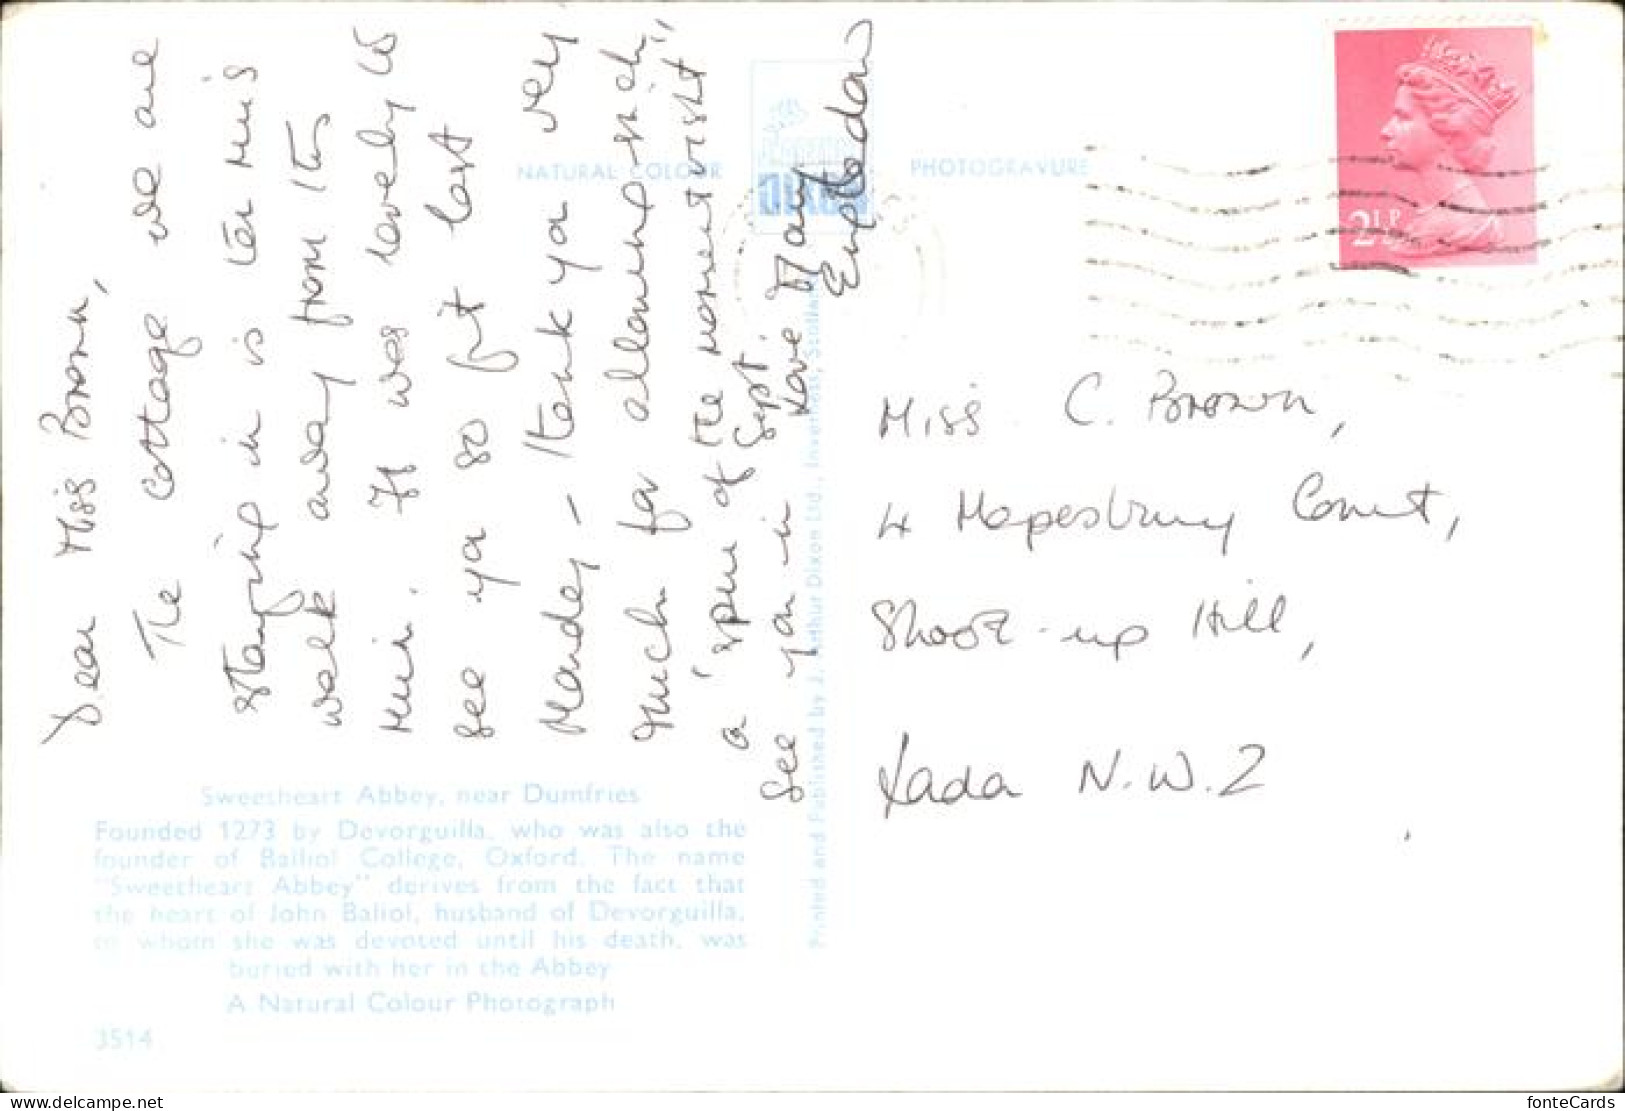 Dear Miss Brown,
The cottage we are
staying in is ten min's
walk away from this
ruin. It was lovely to
see you so fit last
Monday – thank you very
much for allowing such
a 'spur of the moment visit"
See you in Sept.
Love Mary
NATURAL COLOUR
DIXON
PHOTOGRAVURE
2½P
Miss C. Brown,
4 Mapesbury Court,
Shoot-up Hill,
London N.W.2
Printed and Published by J. Arthur Dixon Ltd., Inverness, Scotland
Sweetheart Abbey, near Dumfries
Founded 1273 by Devorguilla, who was also the
founder of Balliol College, Oxford. The name
"Sweetheart Abbey" derives from the fact that
the heart of John Baliol, husband of Devorguilla,
to whom she was devoted until his death, was
buried with her in the Abbey
A Natural Colour Photograph
3514
delcampe.net
fonteCards